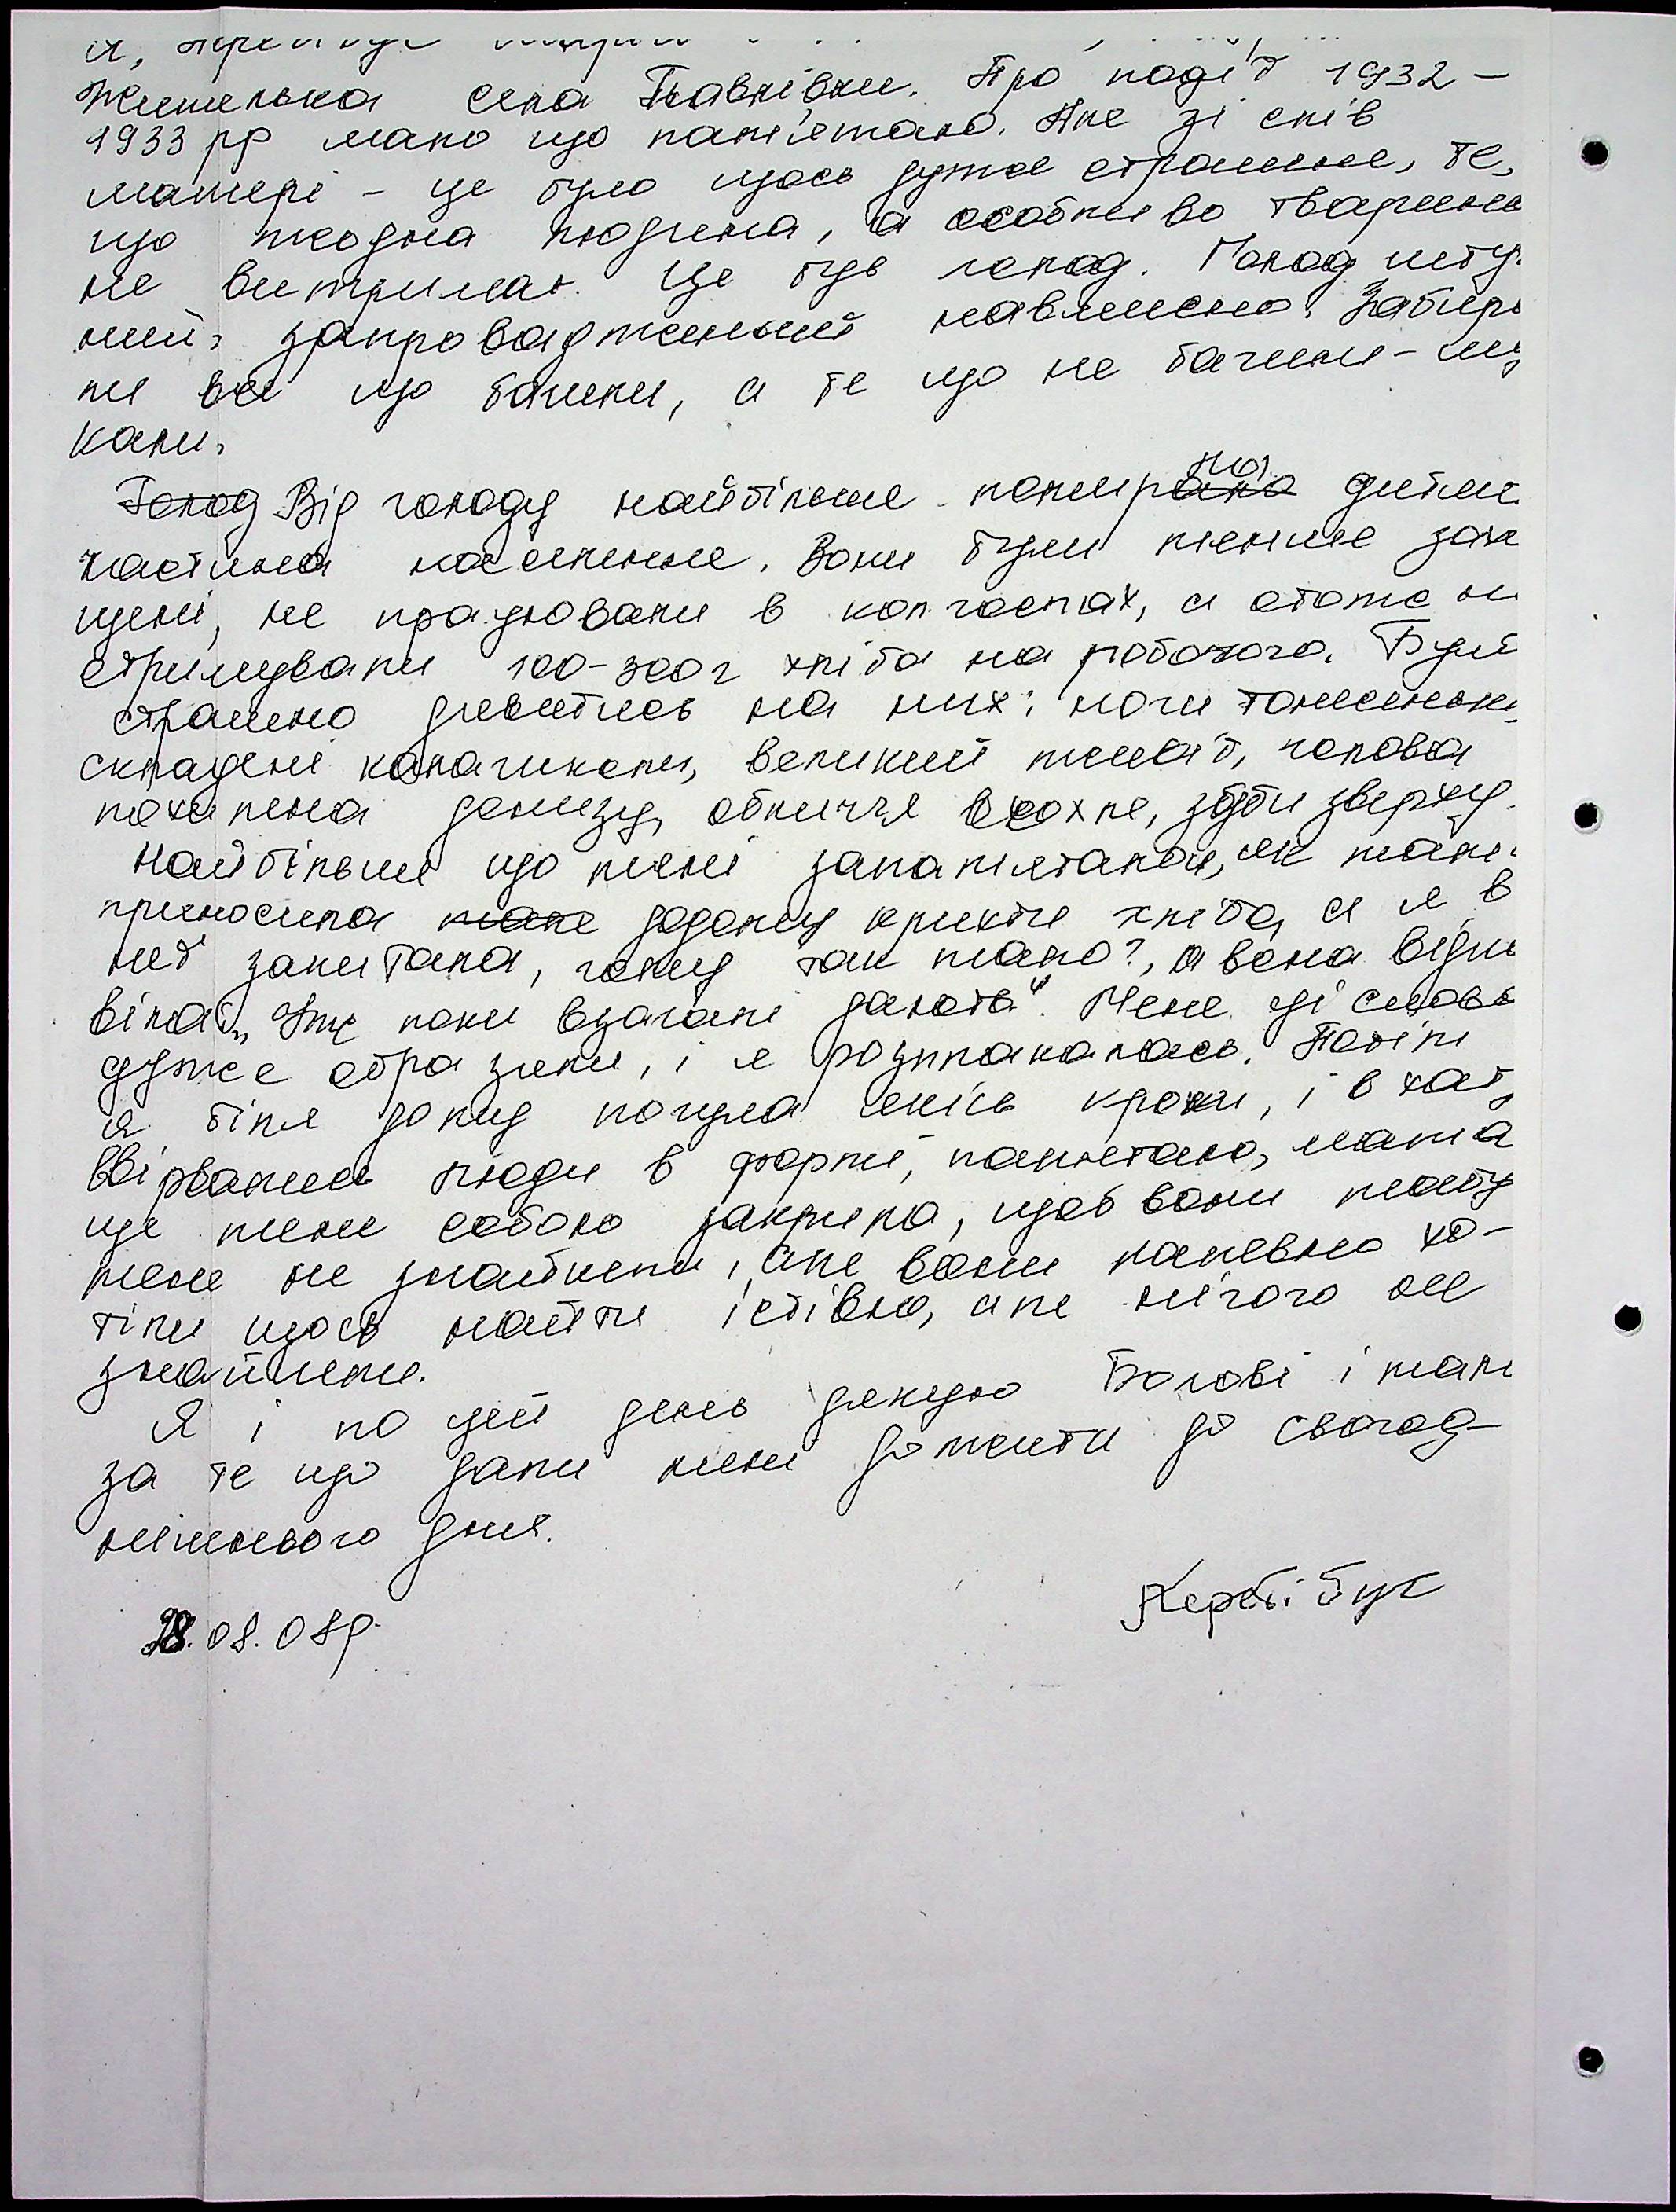 я,
Жителька села Павлівки. Про події 1932-
1933 рр мало що пам'ятаю. Але зі слів
матері - це було щось дуже страшне, те,
що жодна людина, а особливо тварина
не витримає. Це був голод. Голод шту
ний, запроваджений навмисно. Забира
ли все що бачили, а те що не бачили - шу
кали.
Голод Від голоду найбільше помирала дитяч
частина населення. Вони були менше зах
щені, не працювали в колгоспах, а отже н
отримували 100-300г хліба на робочого. Було
страшно дивитись на них: ноги тоненьк
складені калачиком, великий живіт, голова
похилена донизу, обличчя всохле, зуби зверху.
Найбільше що мені запам'яталось, як мам
приносила мале додому крихти хліба, а я в
неї запитала, чому так мало?, а вона відпо
віла: "Це поки взагалі дають". Мене ці слова
дуже образили, і я розплакалась. Потім
я біля дому почула якісь кроки, і в хат
ввірвались люди в формі, пам'ятаю, мама
ще мене собою закрила, щоб вони мабу
мене не знайшли, але вони напевно хо-
тіли щось найти їстівне, але нічого не
знайшли.
Я і по цей день дякую Богові і мам
за те що дали мені дожити до сьогод-
нішнього дня.
28.08.08р.